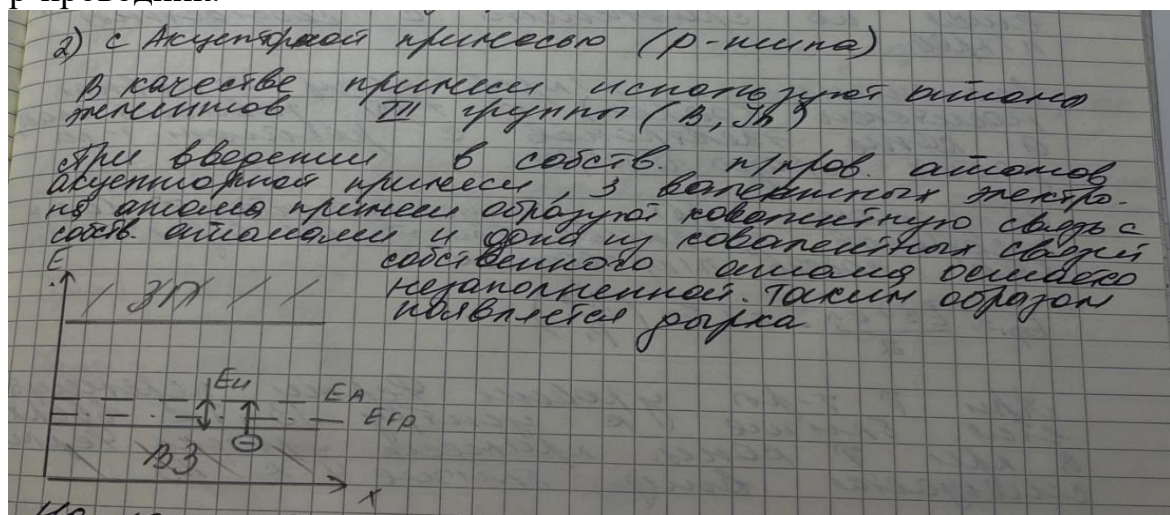 р-проводник.
2) с Акцепторной примесью (р-типа)
В качестве примеси используют атомы
элементов III группы (В, In)
При введении в собств. п/пров. атомов
акцепторной примеси, 3 валентных электро-
на атома примеси образуют ковалентную связь с
собств. атомами и одна из ковалентных связей
собственного атома остаётся
незаполненной. Таким образом
появляется дырка
E
ЗП
Eи
EA
EFp
ВЗ
x